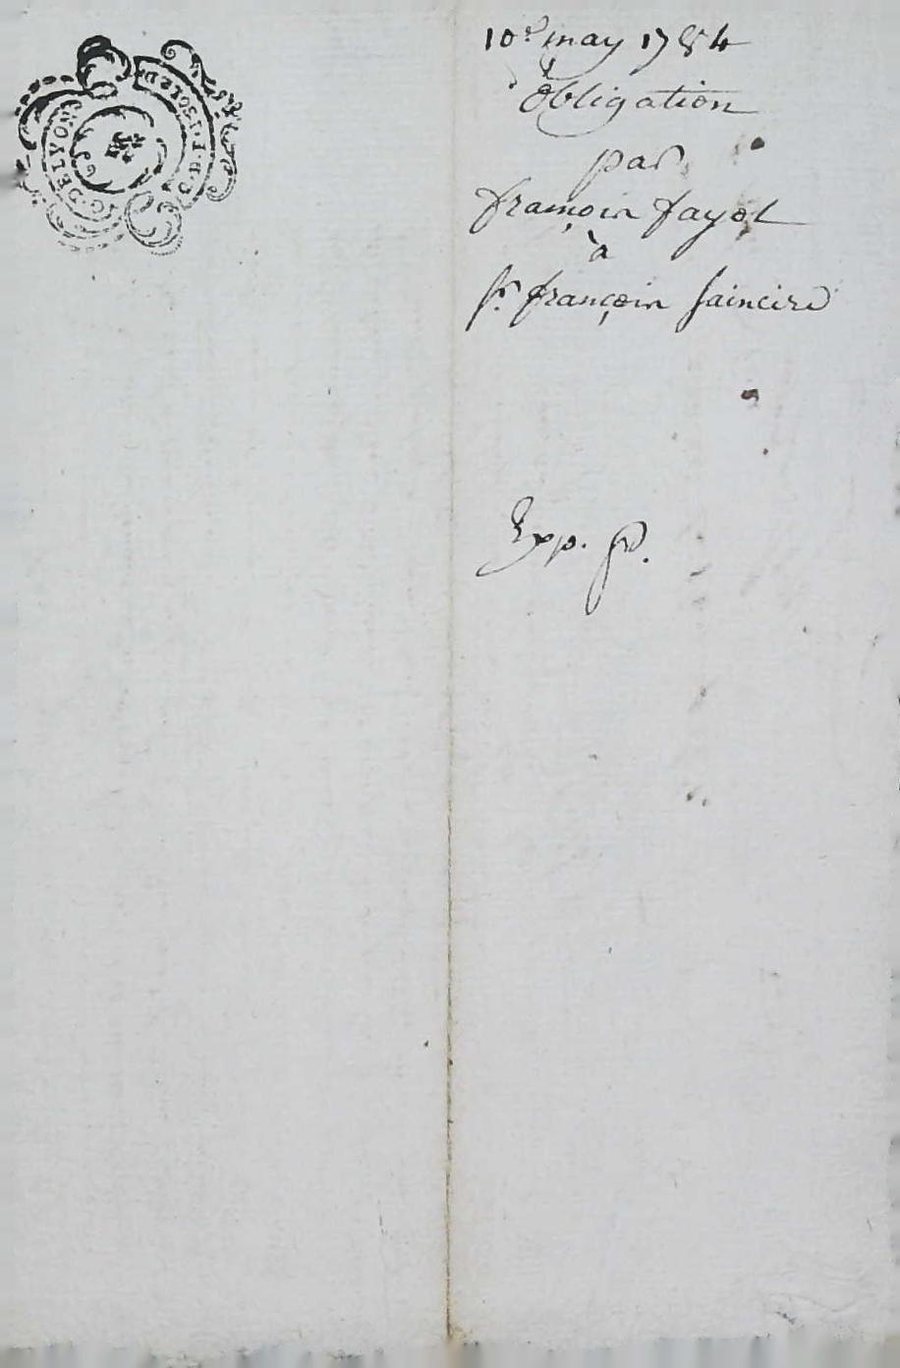 G. DE LYON
10e. may 1784
Obligation
par
françois fayol
à
Sr. françois sainciré
Exp. P.